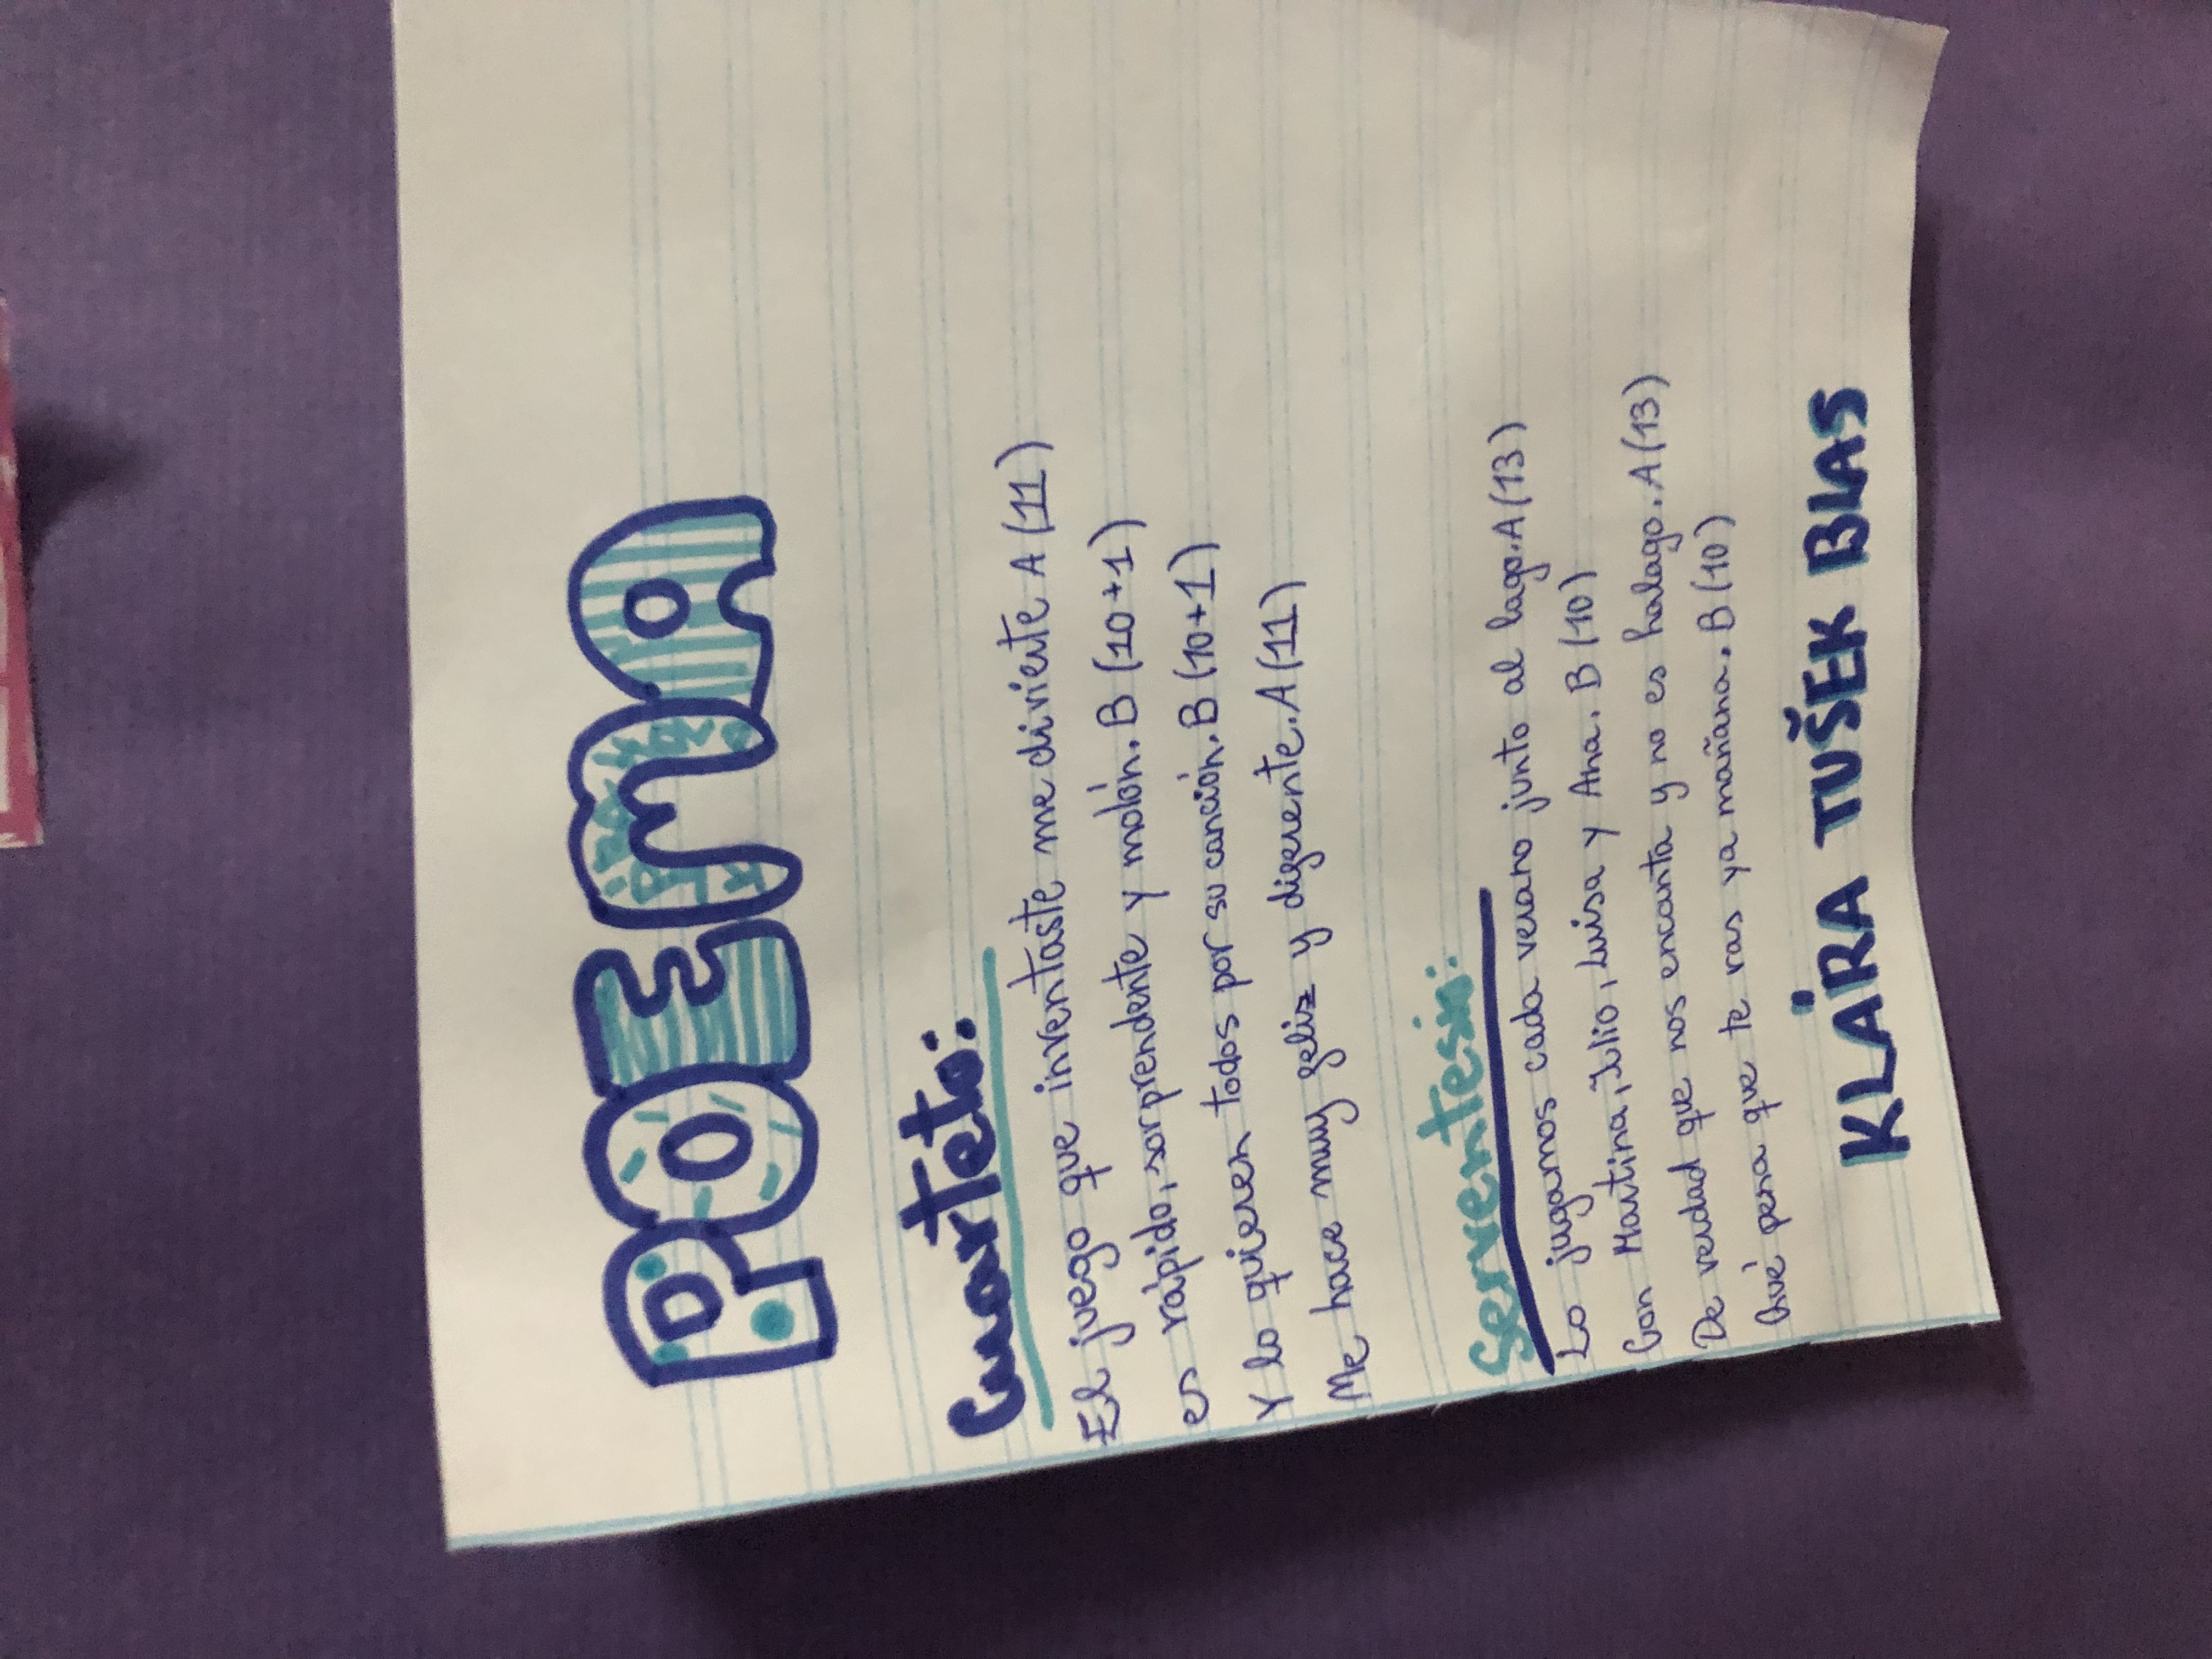 POEMA
Cuarteto:
El juego que inventaste me diviente A (11)
es rápido, sorprendente y molón. B (10+1)
Y lo quieren todos por su canción. B (10+1)
Me hace muy feliz y diferente. A (11)
Serventesio:
Lo jugamos cada verano junto al lago. A (13)
Con Martina, Julio, Luisa y Ana. B (10)
De verdad que nos encanta y no es halago. A (13)
Qué pena que te vas ya mañana. B (10)
KLÁRA TUŠEK BLAS